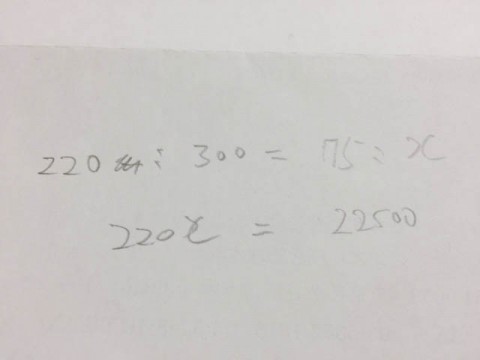 220 : 300 = 75 : x
220x = 22500